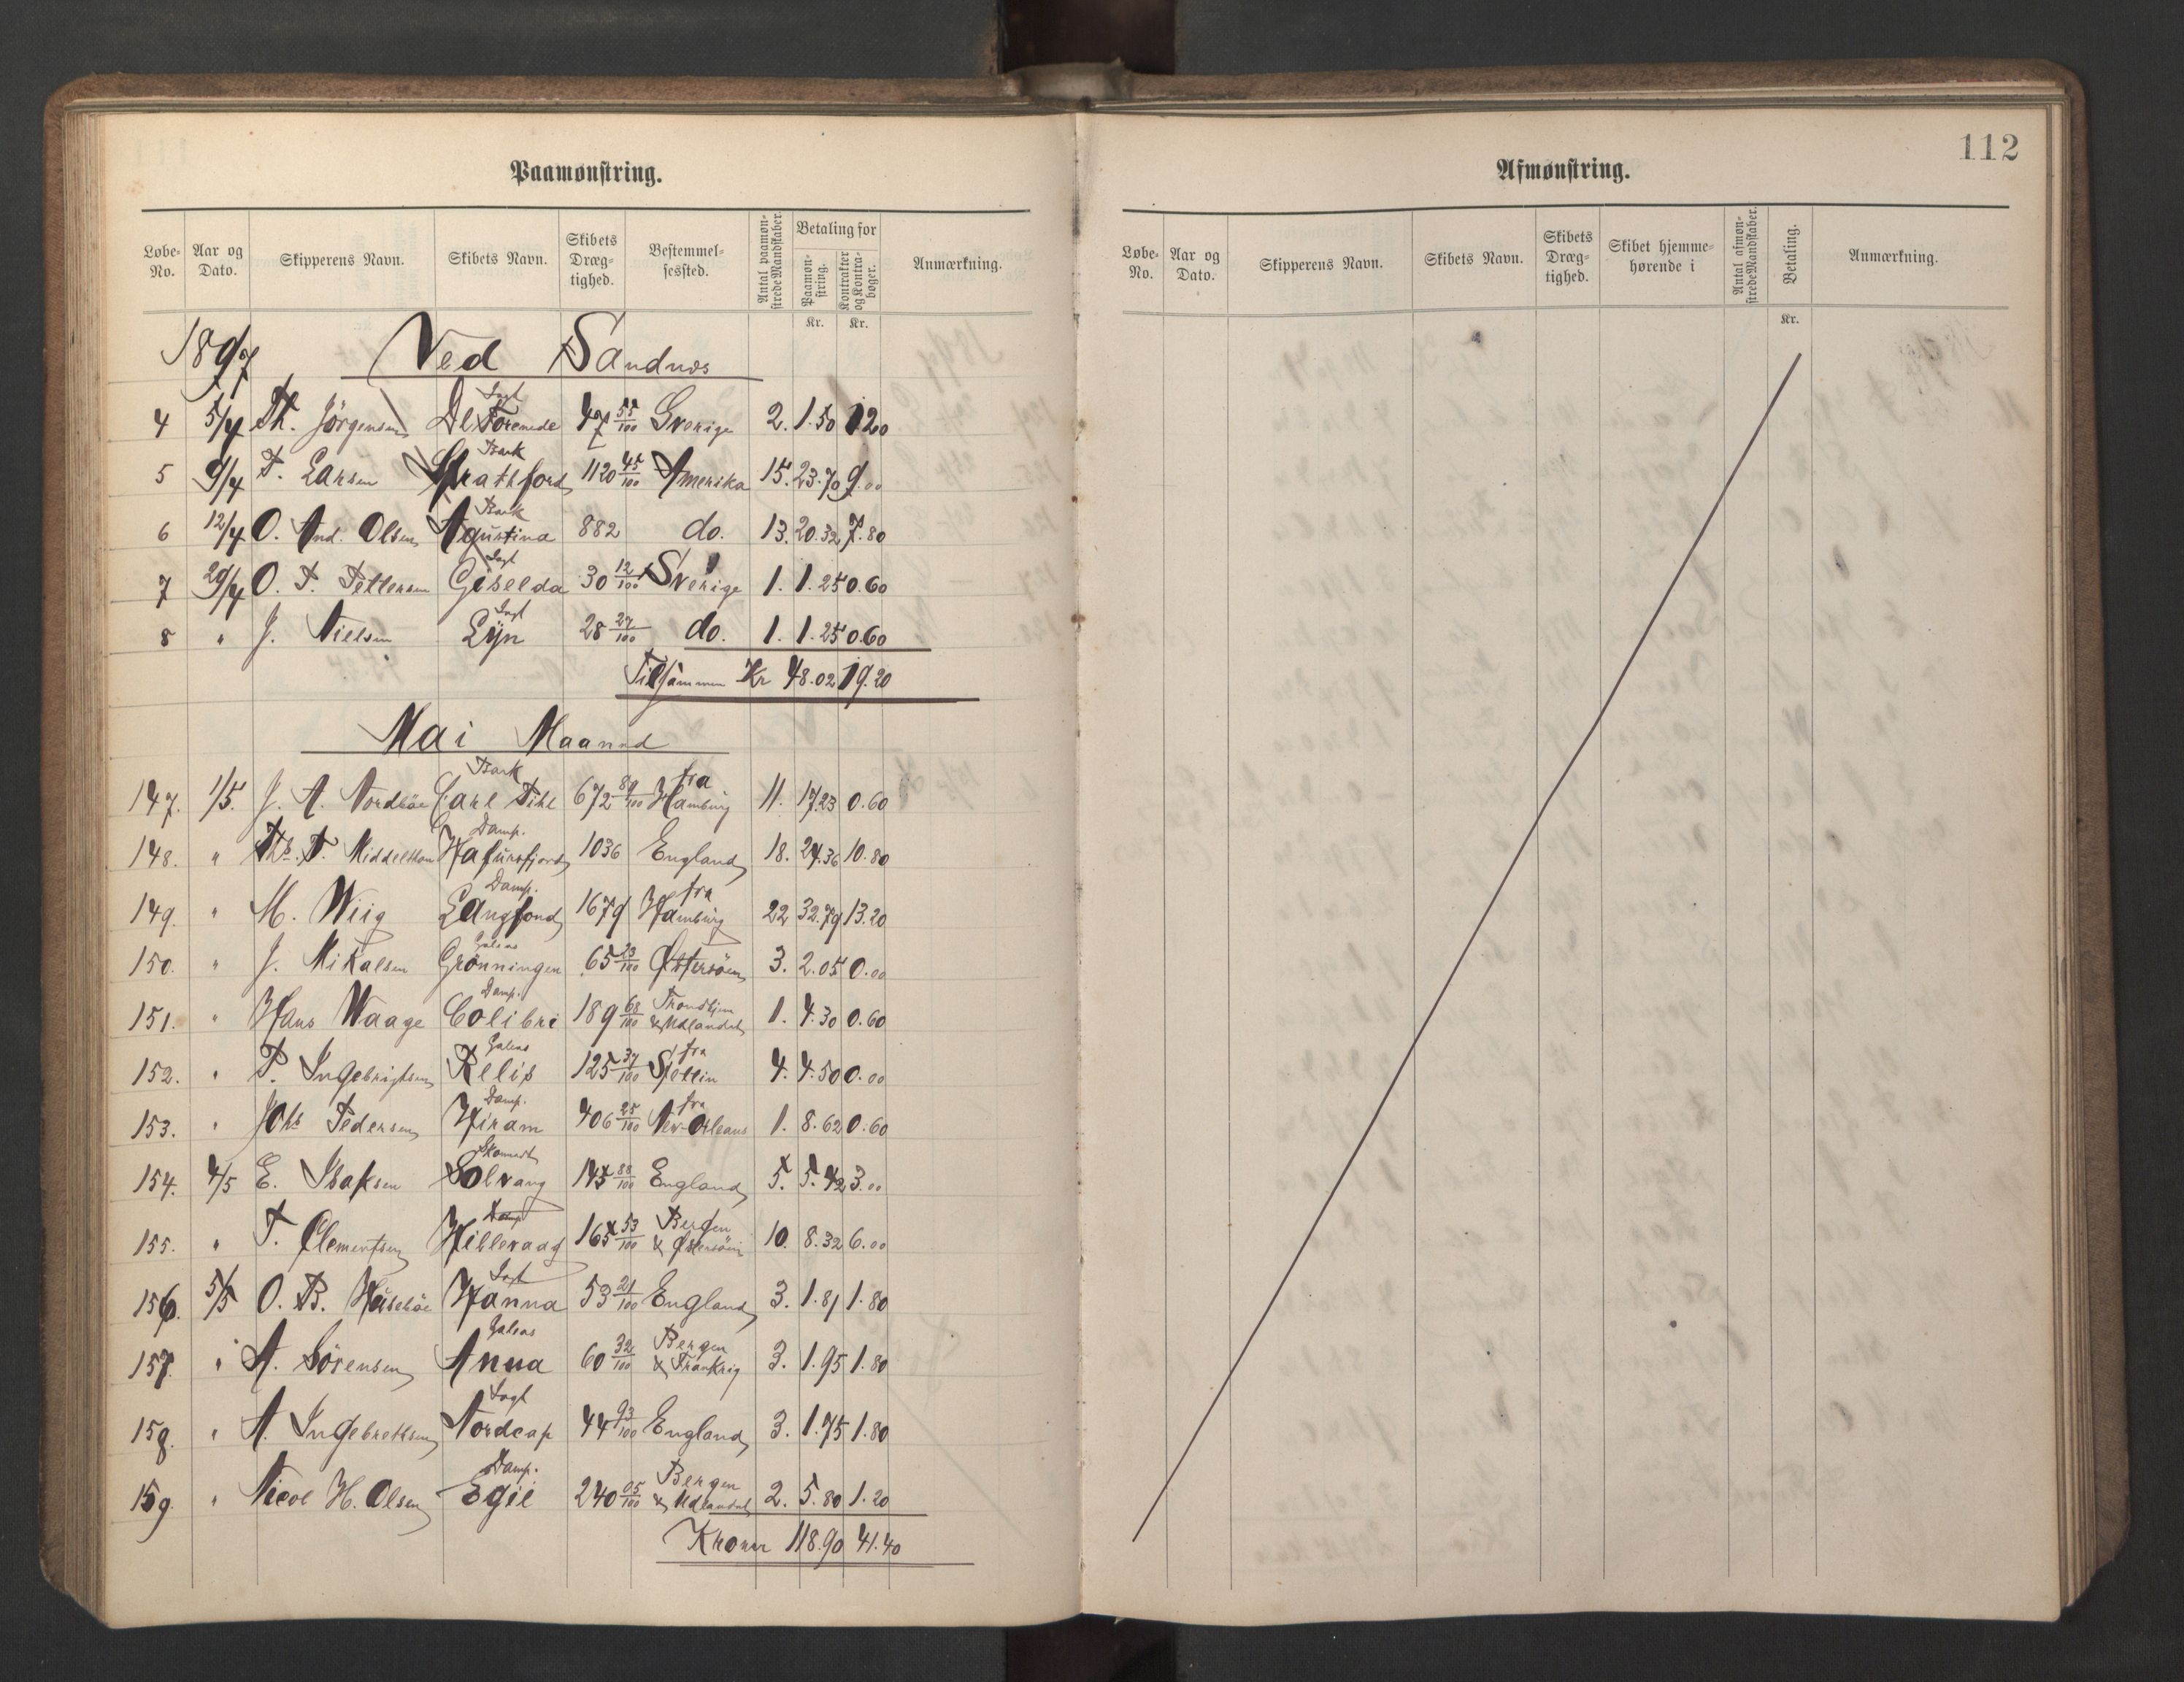 Paamønstring.
Løbe-No. Aar og Dato. Skipperens Navn. Skibets Navn. Skibets Dræg-tighed. Bestemmel-sessted. Antal paamøn-strede Mandskaber. Betaling for Paamøn-string. Kontrakter og Kontra-bøger. Anmærkning.
Kr. Kr.
1897 Ved Sandnæs
4 5/4 Th. Jörgensen Jagt De Forenede 47 55/100 Sverige 2. 1.50 1.20
5 9/4 T. Larsen Bark Strathford 1120 45/100 Amerika 15. 23.70 9.00
6 12/4 O. And. Olsen Bark Agustina 882 do. 13. 20.32 7.80
7 29/4 O. T. Pettersen Jagt Giselda 30 12/100 Sverige 1. 1.25 0.60
8 " J. Nielsen Jagt Lyn 28 27/100 do. 1. 1.25 0.60
Tilsammen Kr 48.02 19.20
Mai Maaned
147. 1/5. J. A. Nordböe Bark Carl Pihl 672 89/100 fra Hamburg 11. 17.23 0.60
148. " Ths. T. Middelthon Damp. Hafursfjord 1036 England 18. 24.36 10.80
149. " M. Wiig Damp. Langfond 1679 fra Hamburg 22 32.79 13.20
150. " J. Mikalsen Galeas Grönningen 65 23/100 Østersöen 3. 2.05 0.00
151. " Hans Waage Damp. Colibri 189 68/100 Trondhjem & Udlandet 1. 4.30 0.60
152. " P. Ingebrigtsen Galeas Relis 125 37/100 fra Stettin 4. 4.50 0.00
153. " Johs Pedersen Damp. Hiram 406 25/100 fra New-Orleans 1. 8.62 0.60
154. 4/5 E. Isaksen Skonnert Solvang 145 88/100 England 5. 5.42 3.00
155. " T. Clementsen Damp Hilleraag 165 53/100 Bergen & Østersöen 10. 8.32 6.00
156. 5/5 O. B. Huseböe Jagt Hanna 53 21/100 England 3. 1.81 1.80
157. " A. Sörensen Galeas Anna 60 32/100 Bergen & Frankrig 3. 1.95 1.80
158. " A. Ingebretsen Jagt Nordcap 44 93/100 England 3. 1.75 1.80
159. " Nicol H. Olsen Damp. Egil 240 05/100 Bergen & Udlandet 2. 5.80 1.20
Kroner 118.90 41.40
112
Afmønstring.
Løbe-No. Aar og Dato. Skipperens Navn. Skibets Navn. Skibets Dræg-tighed. Skibet hjemme-hørende i Antal afmøn-strede Mandskaber. Betaling. Anmærkning.
Kr.